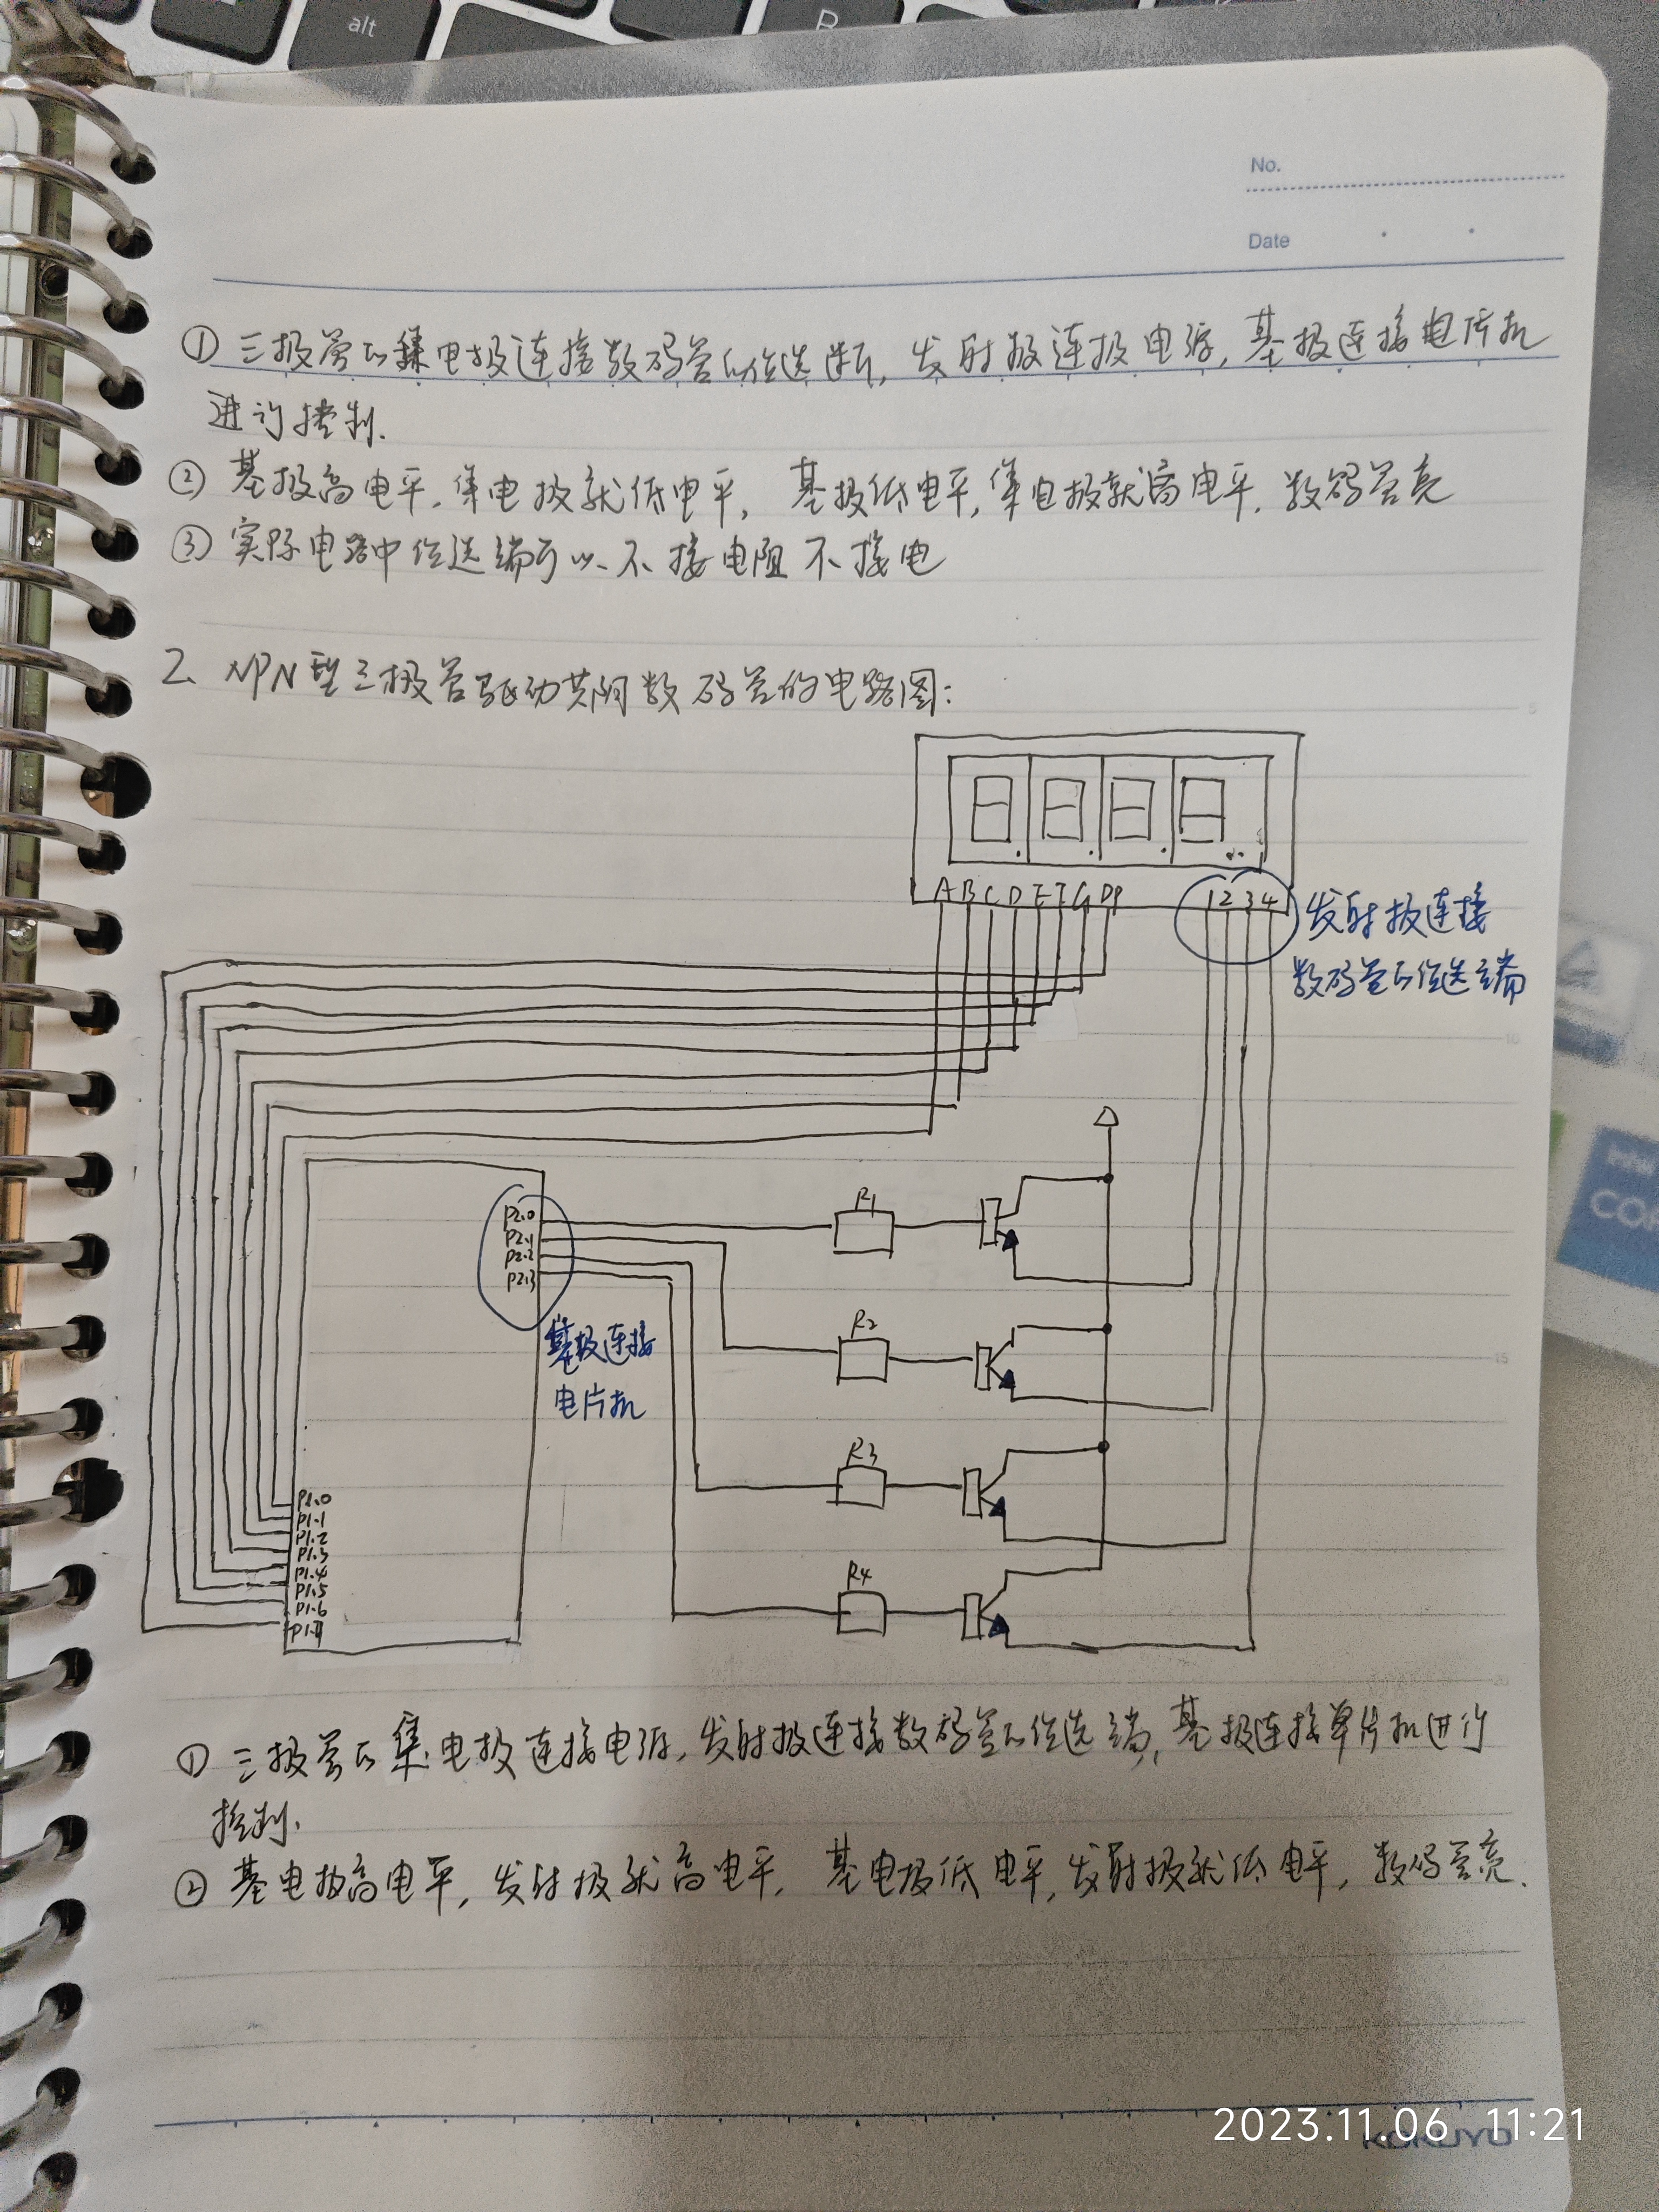 alt
R
No.
Date
① 三极管的集电极连接数码管的位选断, 发射极连极电源, 基极连接电片机
进行控制.
② 基极高电平, 集电极就低电平, 基极低电平, 集电极就高电平, 数码管亮
③ 实际电路中位选端可以不接电阻不接电
2、NPN型三极管驱动共阴数码管的电路图:
A B C D E F G DP
1 2 3 4
发射极连接
数码管的位选端
P2.0
P2.1
P2.2
P2.3
R1
R2
基极连接
电片机
R3
R4
P1.0
P1.1
P1.2
P1.3
P1.4
P1.5
P1.6
P1.7
① 三极管的集电极连接电源, 发射极连接数码管的位选端, 基极连接单片机进行
控制.
② 基电极高电平, 发射极就高电平, 基电极低电平, 发射极就低电平, 数码管亮.
5
10
15
20
COR
2023.11.06 11:21
KOKUYO